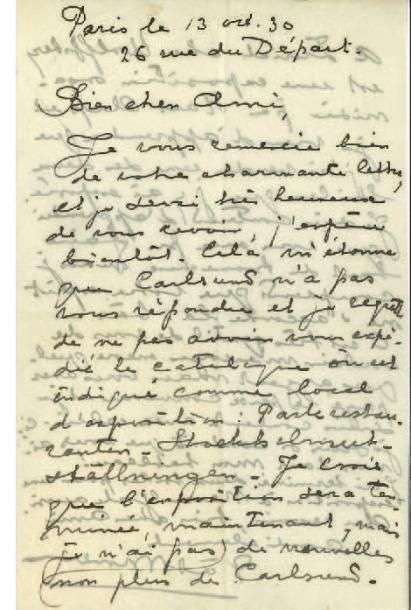 Paris le 13 oct. 30
26 rue du Départ.
Bien cher Ami,
Je vous remercie bien
de votre charmante lettre,
et je serai très heureux
de vous revoir, j'espère
bientôt. Cela m'étonne
que Carlsund n'a pas
vous répondu et je regrette
de ne pas avoir vous expé-
dié le catalogue où est
indiqué comme local
d'exposition: Parkrestau-
ranten - Stockholmsut-
ställningen. Je crois
que l'exposition sera ter-
minée, maintenant, mais
je n'ai pas de nouvelles
non plus de Carlsund.